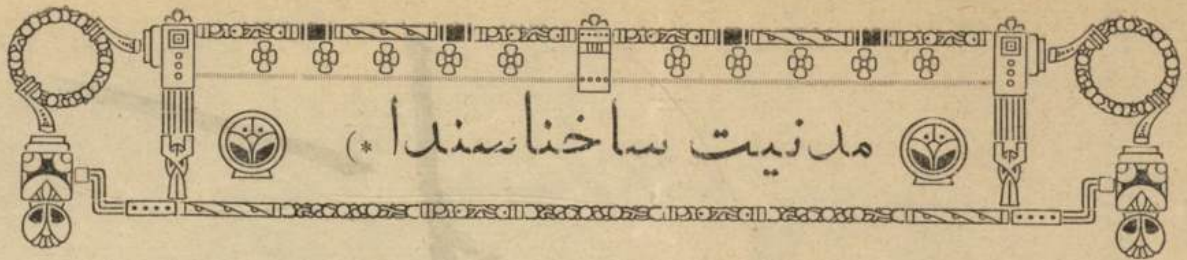 مدنيت ساخناسندا *)